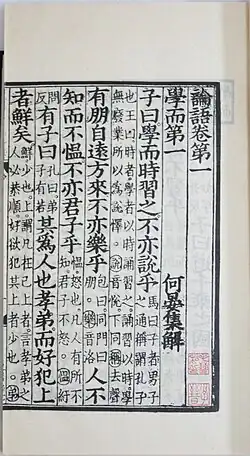 論語卷第一
學而第一 何晏集解
子曰學而時習之不亦說乎 馬曰子者男子之通稱謂孔子
也王曰時者學者以時誦習之誦習以時學無廢業所以爲說懌 說音悅下同稱去聲
有朋自遠方來不亦樂乎 包曰同門曰朋 樂音洛 人不
知而不慍不亦君子乎 慍怒也凡人有所不知君子不怒 慍紆
問反 有子曰 孔曰弟子有若 其爲人也孝弟而好犯上
者鮮矣 鮮少也上謂凡在己上者言孝弟之人必恭順好欲犯其上者少也 弟